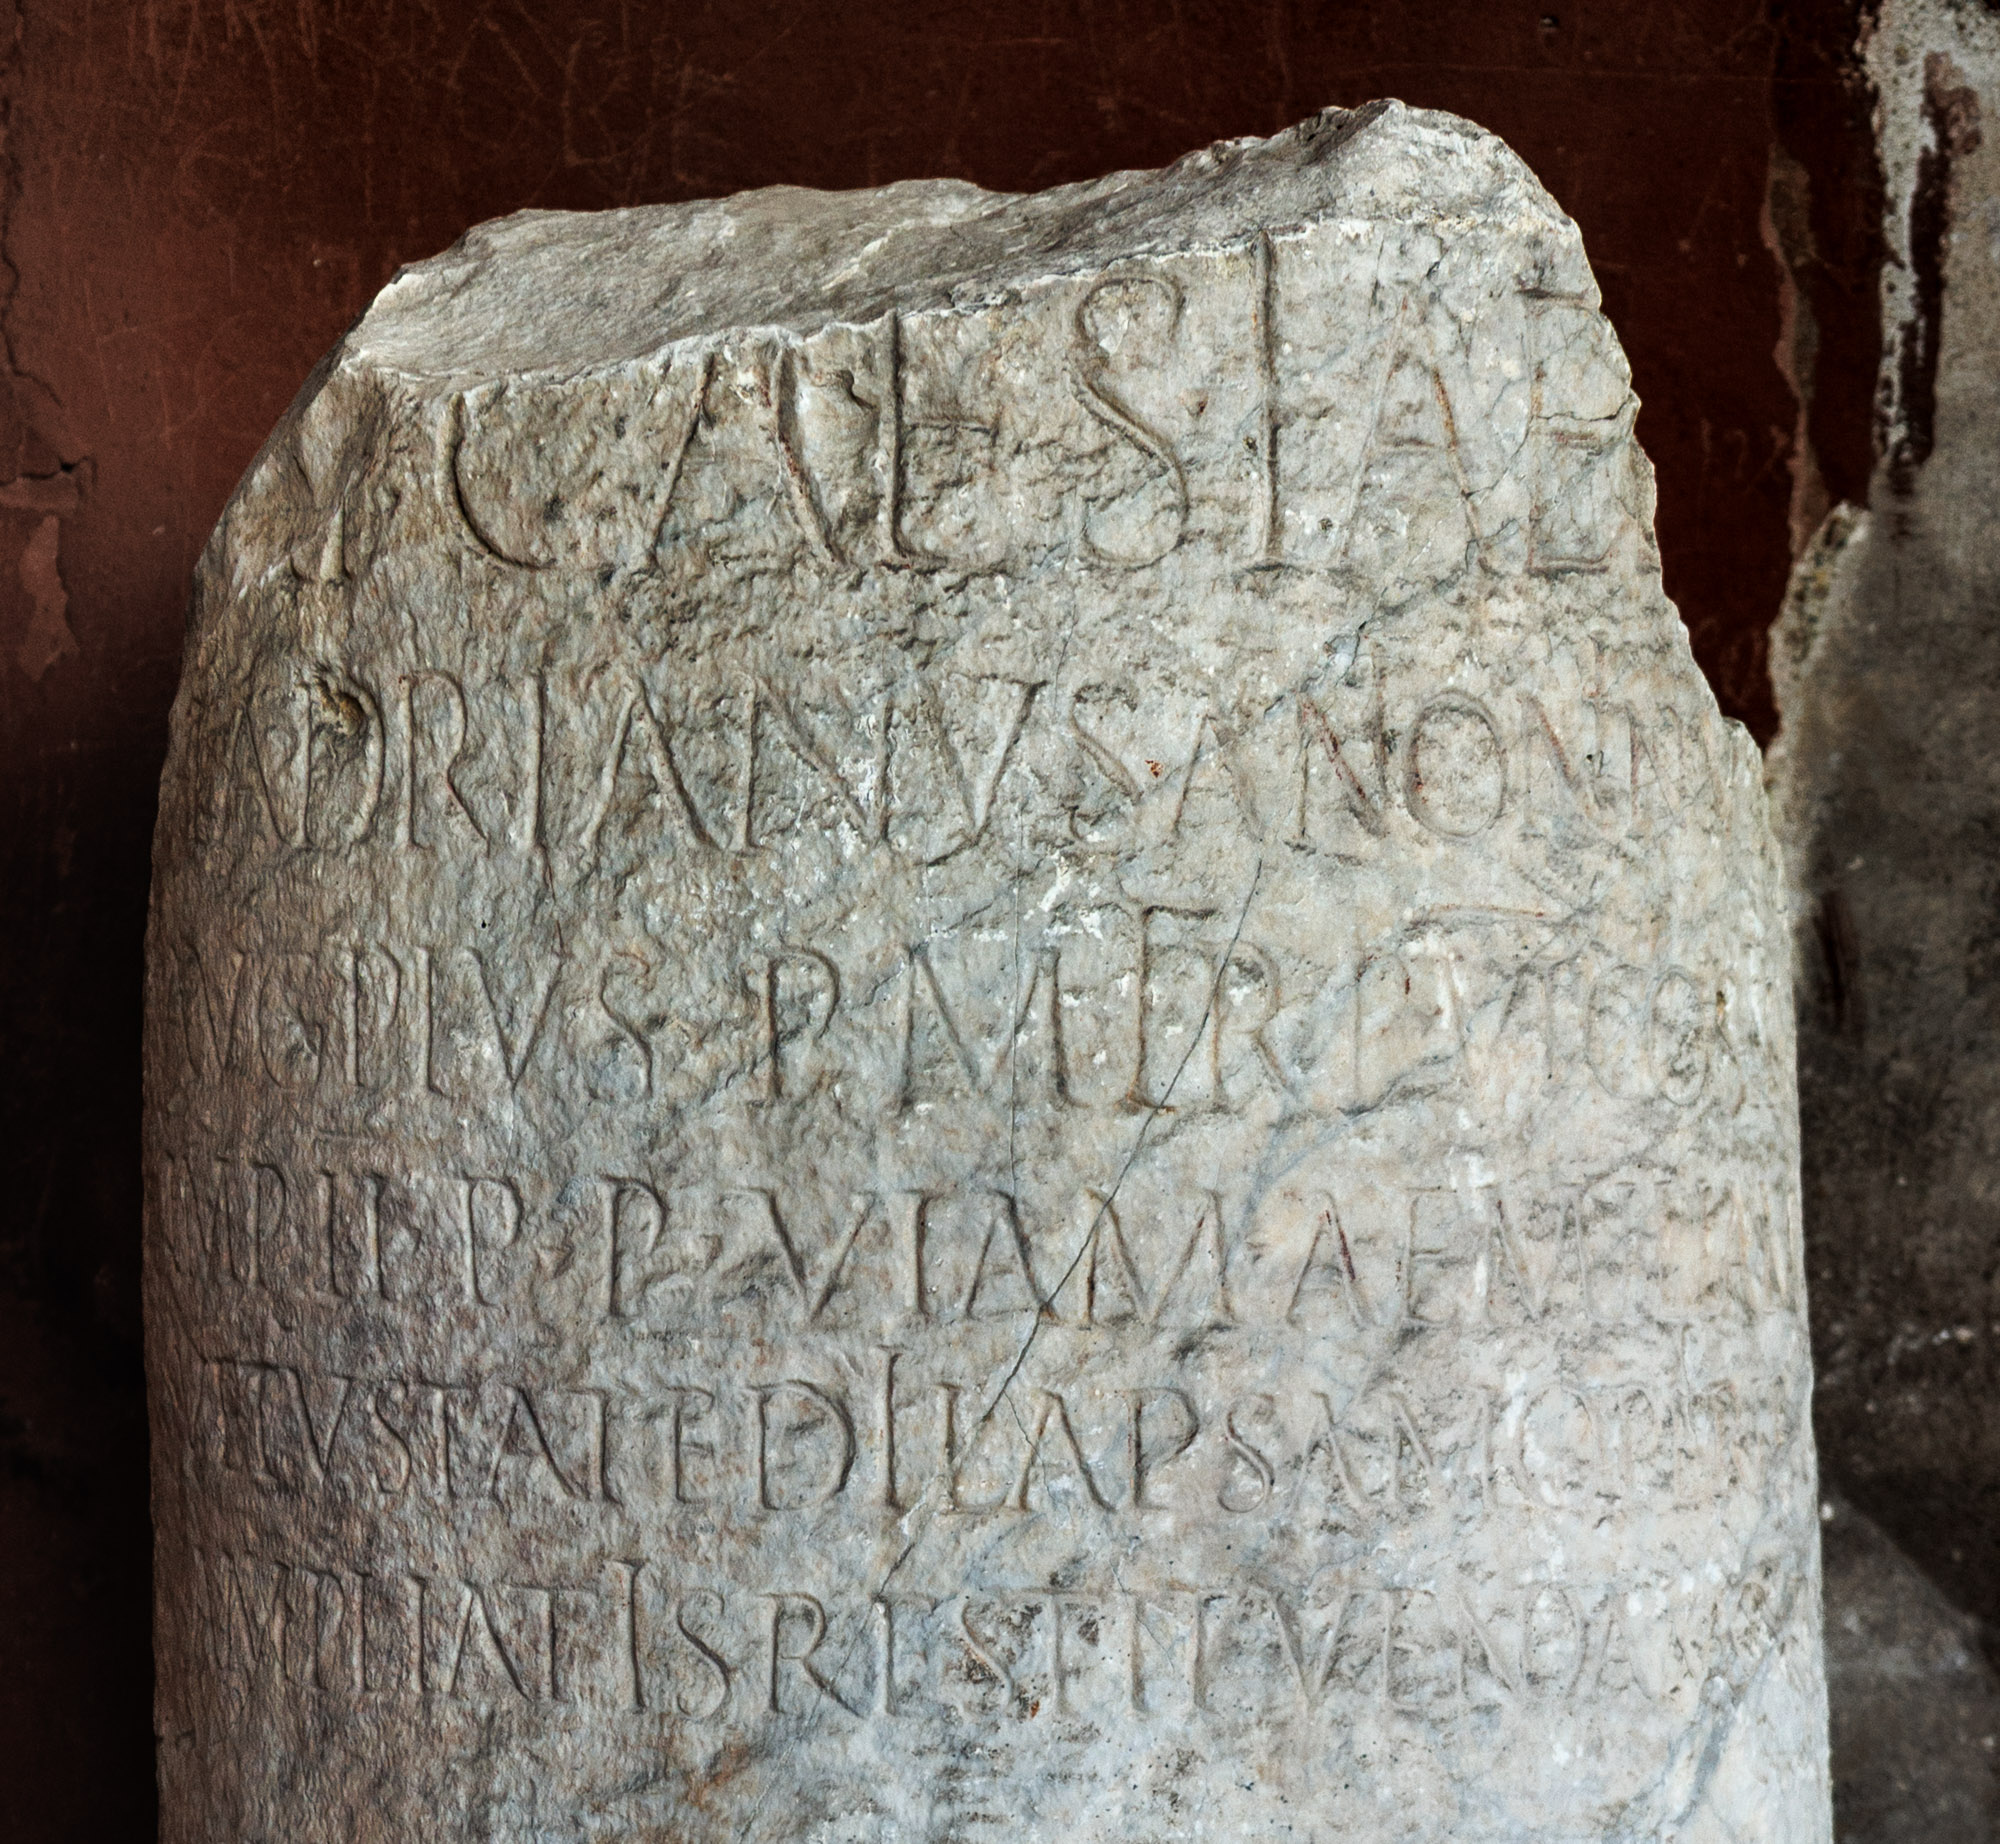 P CAES T AE
ADRIANVS ANONIN
AVG PIVS P M TR P VI COS
IMP II P P VIAM AEMILIAM
VETVSTATE DILAPSAM OPERIB
AMPLIATIS RESTITVENDAM